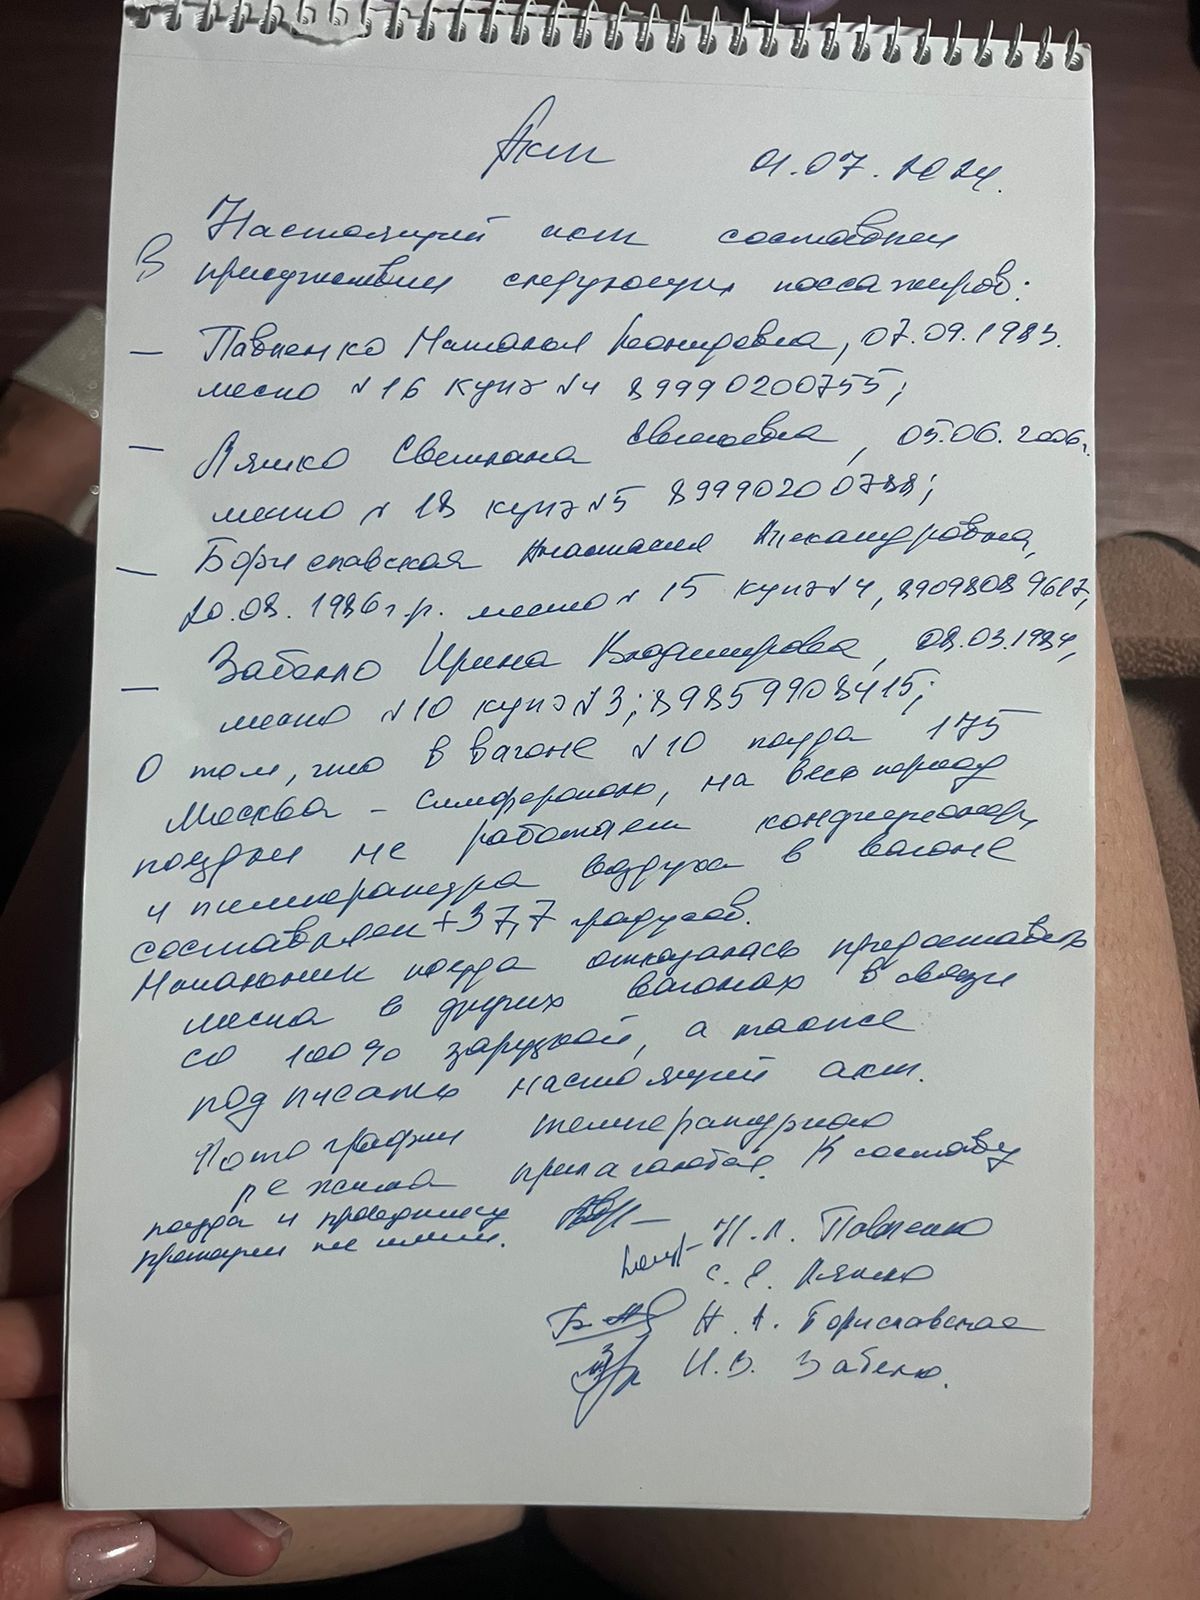 Акт 01.07.2024.
Настоящий акт составлен
В присутствии следующих пассажиров:
— Павленко Наталья Леонидовна, 07.09.1983.
место №16 купэ №4 89990200755;
— Ляшко Светлана Евгеньевна, 05.06.2006г.
место №18 купэ №5 89990200788;
— Бориславская Анастасия Александровна,
20.08.1986г.р. место №15 купэ №4, 89098089617,
— Забелло Ирина Владимировна, 08.03.1984,
место №10 купэ №3; 89859908415;
О том, что в вагоне №10 поезда 175
Москва - Симферополь, на весь период
поездки не работает кондиционер
и температура воздуха в вагоне
составляет +37,7 градусов.
Начальник поезда отказалась предоставить
места в других вагонах в связи
со 100% загрузкой, а также
подписать настоящий акт.
Фотографии температурного
режима прилагаются. К составу
поезда и проводнику
претензии не имеем.
Н.Л. Павленко
С.Е. Ляшко
А.А. Бориславская
И.В. Забелло.